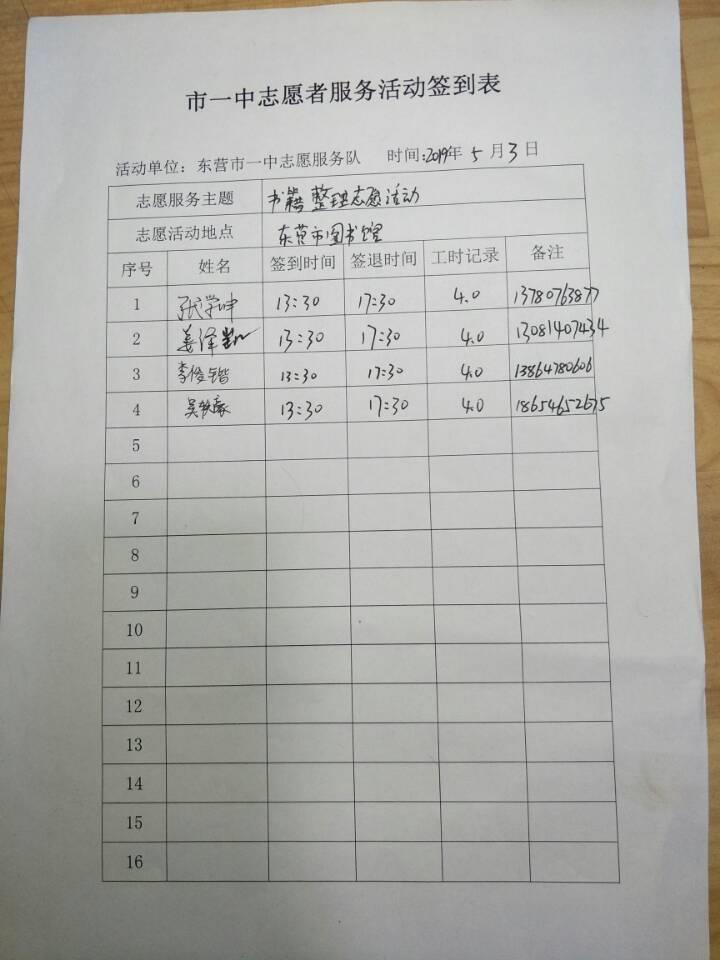 市一中志愿者服务活动签到表
活动单位：东营市一中志愿服务队 时间：2019年 5 月 3 日
志愿服务主题 书籍整理志愿活动
志愿活动地点 东营市图书馆
序号 姓名 签到时间 签退时间 工时记录 备注
1 张学坤 13:30 17:30 4.0 13780763877
2 姜泽凯 13:30 17:30 4.0 13081407434
3 李俊锴 13:30 17:30 4.0 13864780606
4 吴 13:30 17:30 4.0 18654652675
5
6
7
8
9
10
11
12
13
14
15
16